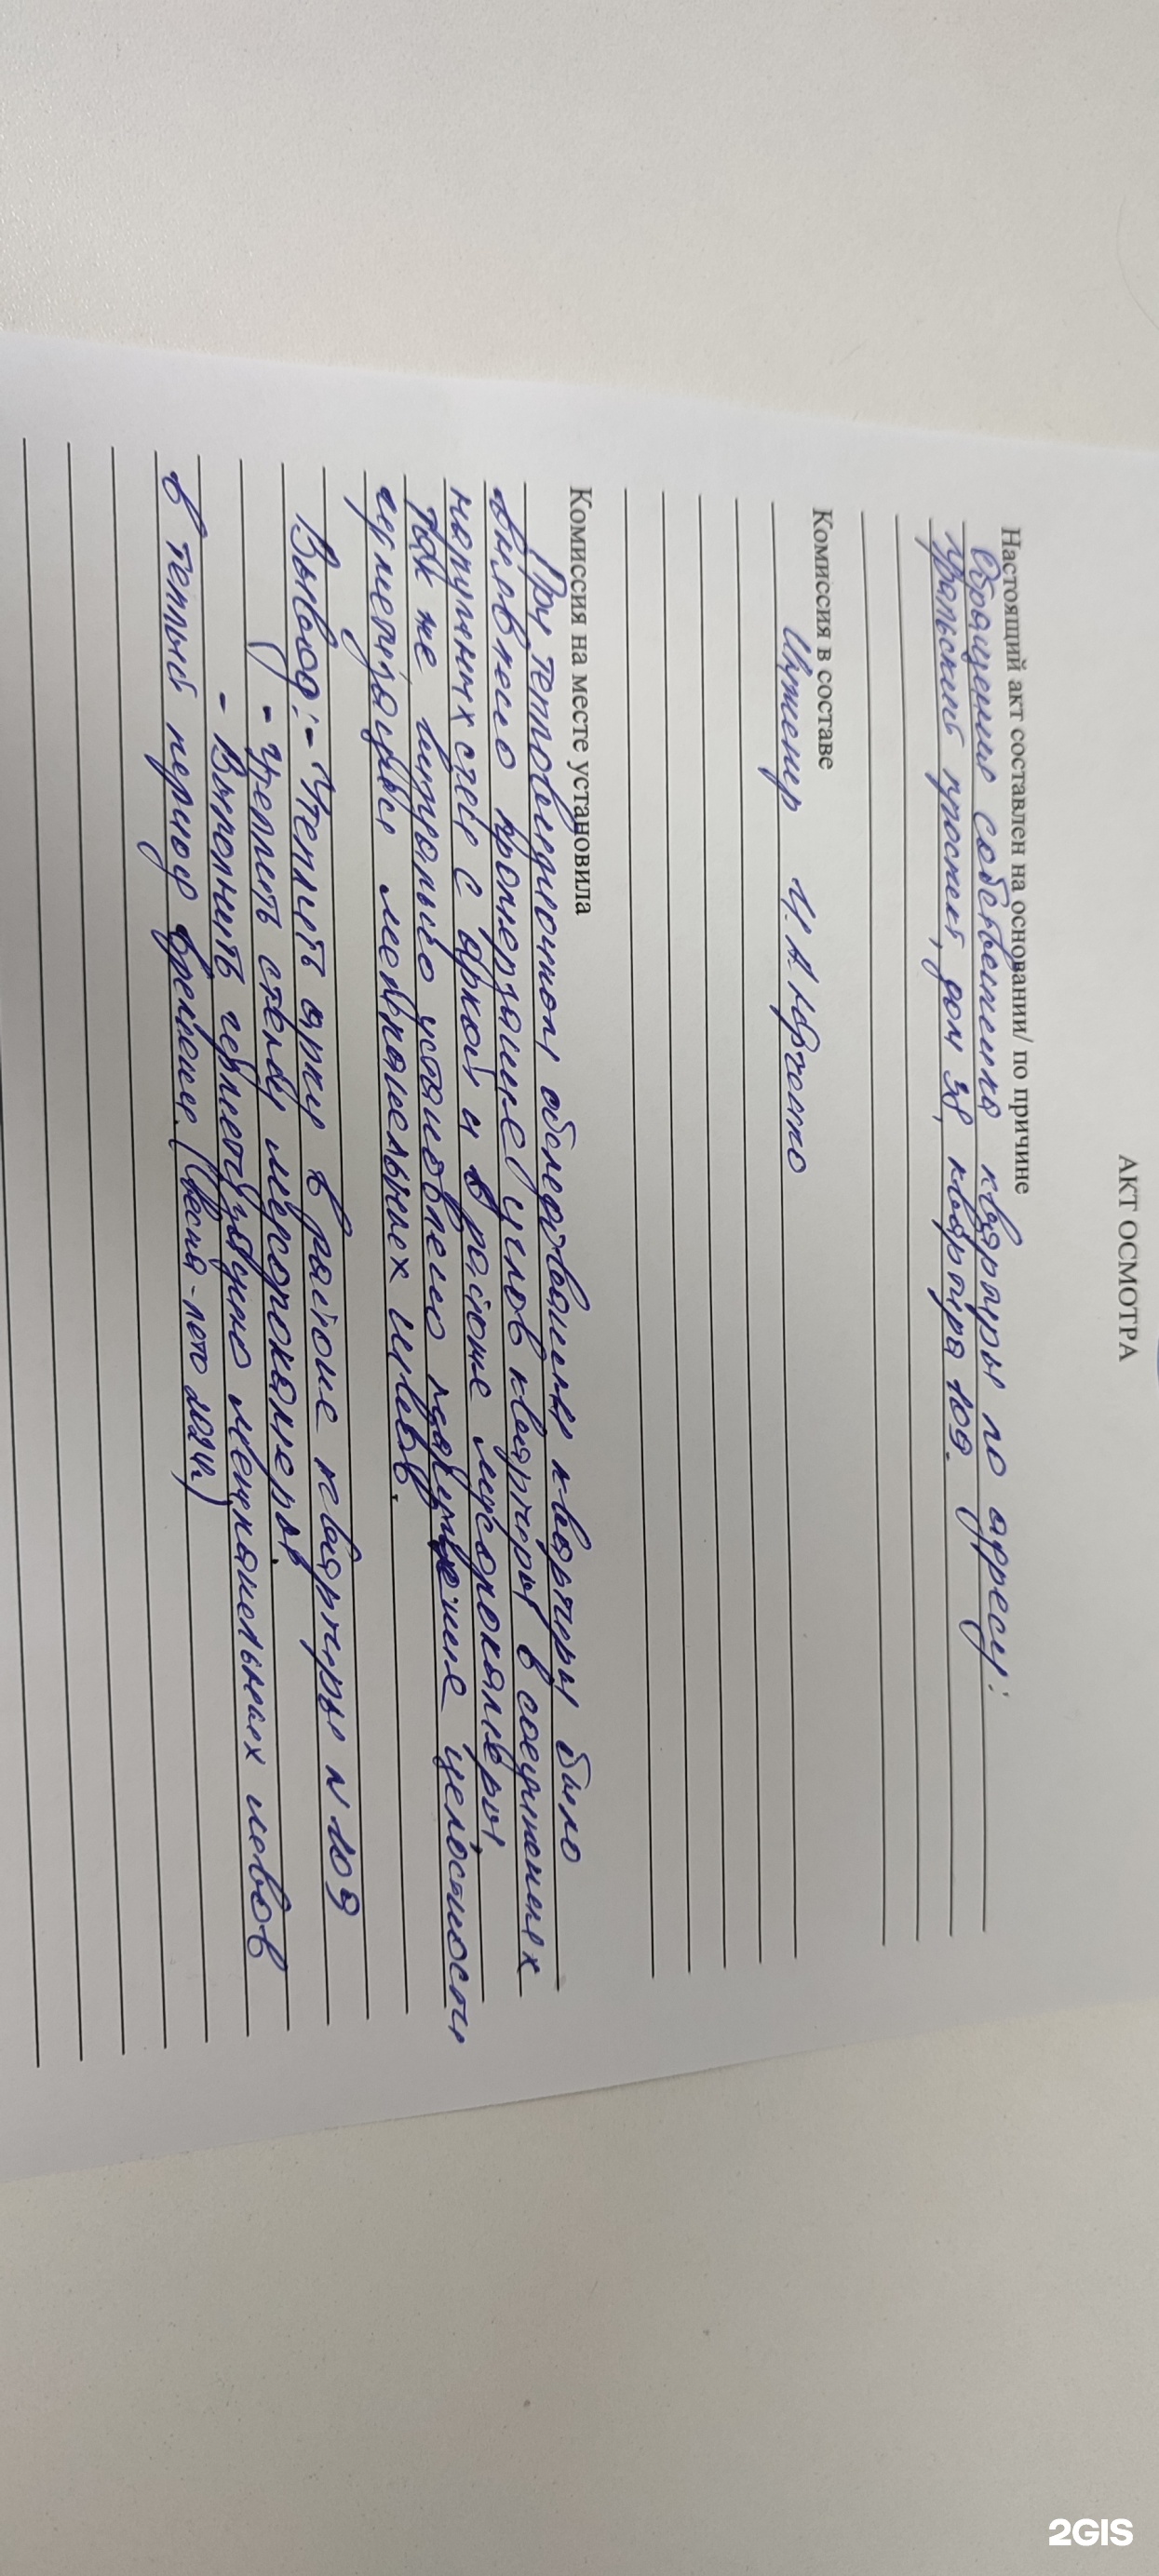 АКТ ОСМОТРА
Настоящий акт составлен на основании/ по причине
Обращения собственника квартиры по адресу:
Уральский проспект, дом 38, квартира 109.
Комиссия в составе
Инженер И.А.
Комиссия на месте установила
При тепловизионном обследовании квартиры было
выявлено промерзание углов квартиры в соединениях
наружных стен с аркой и в районе мусорокамеры
Так же визуально установлено нарушение целостности
герметизации межпанельных швов.
Вывод: - Утеплить арки в районе квартиры N 109
- Утеплить стены мусорокамеры.
- Выполнить герметизацию межпанельных швов
в теплый период времени. (весна-лето 2024г.)
2GIS